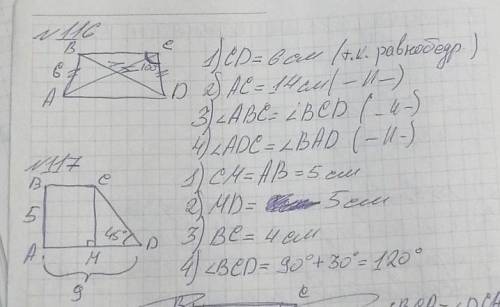 №116
B C
6 100°
A D
1) CD = 6 см (т.к. равнобедр.)
2) AC = 14 см (–//–)
3) ∠ABC = ∠BCD (–//–)
4) ∠ADC = ∠BAD (–//–)
№117
B C
5 45°
A M D
9
1) CM = AB = 5 см
2) MD = 5 см
3) BC = 4 см
4) ∠BCD = 90° + 30° = 120°
B C